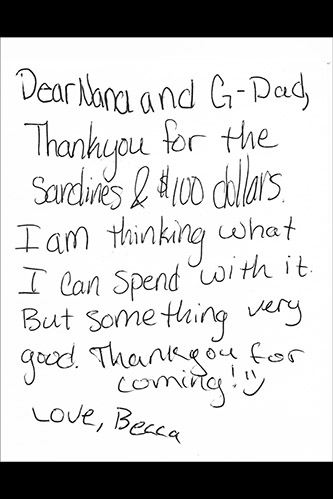 Dear Nana and G-Dad,
Thankyou for the
Sardines & $100 dollars.
I am thinking what
I can spend with it.
But something very
good. Thankyou for
coming! :)
Love, Becca